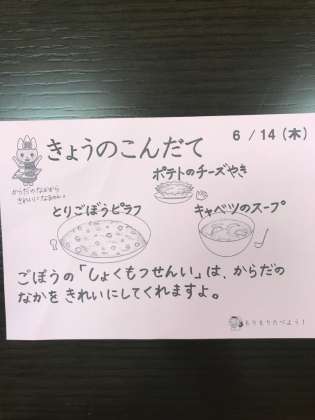 6 / 14 (木)
きょうのこんだて
からだのなかから
きれいになるのん。
ポテトのチーズやき
とりごぼうピラフ
キャベツのスープ
ごぼうの「しょくもつせんい」は、からだの
なかを きれいにしてくれますよ。
もりもりたべよう！